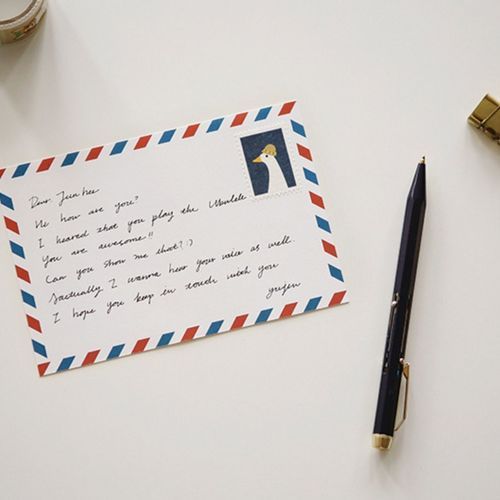 Dear. Jun hee
Hi how are you?
I heared that you play the Ukulele
You are awesome!!
Can you show me that? :)
Sactually I wanna hear your voice as well.
I hope you keep in touch with you
yujen